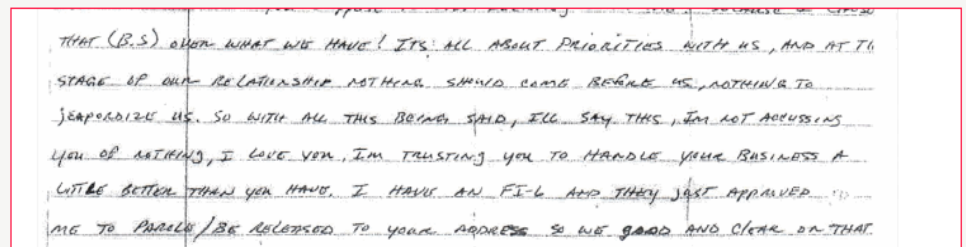 BECAUSE I CHOSE
THAT (B.S) OVER WHAT WE HAVE! ITS ALL ABOUT PRIORITIES WITH US, AND AT TI
STAGE OF OUR RELATIONSHIP NOTHING SHOULD COME BEFORE US, NOTHING TO
JEAPORDIZE US. SO WITH ALL THIS BEING SAID, ILL SAY THIS, IM NOT ACCUSSING
YOU OF NOTHING, I LOVE YOU, IM TRUSTING YOU TO HANDLE YOUR BUSINESS A
LITTLE BETTER THAN YOU HAVE. I HAVE AN FI-6 AND THEY JUST APPROVED
ME TO PAROLE/BE RELEASED TO YOUR ADDRESS SO WE GOOD AND CLEAR ON THAT.